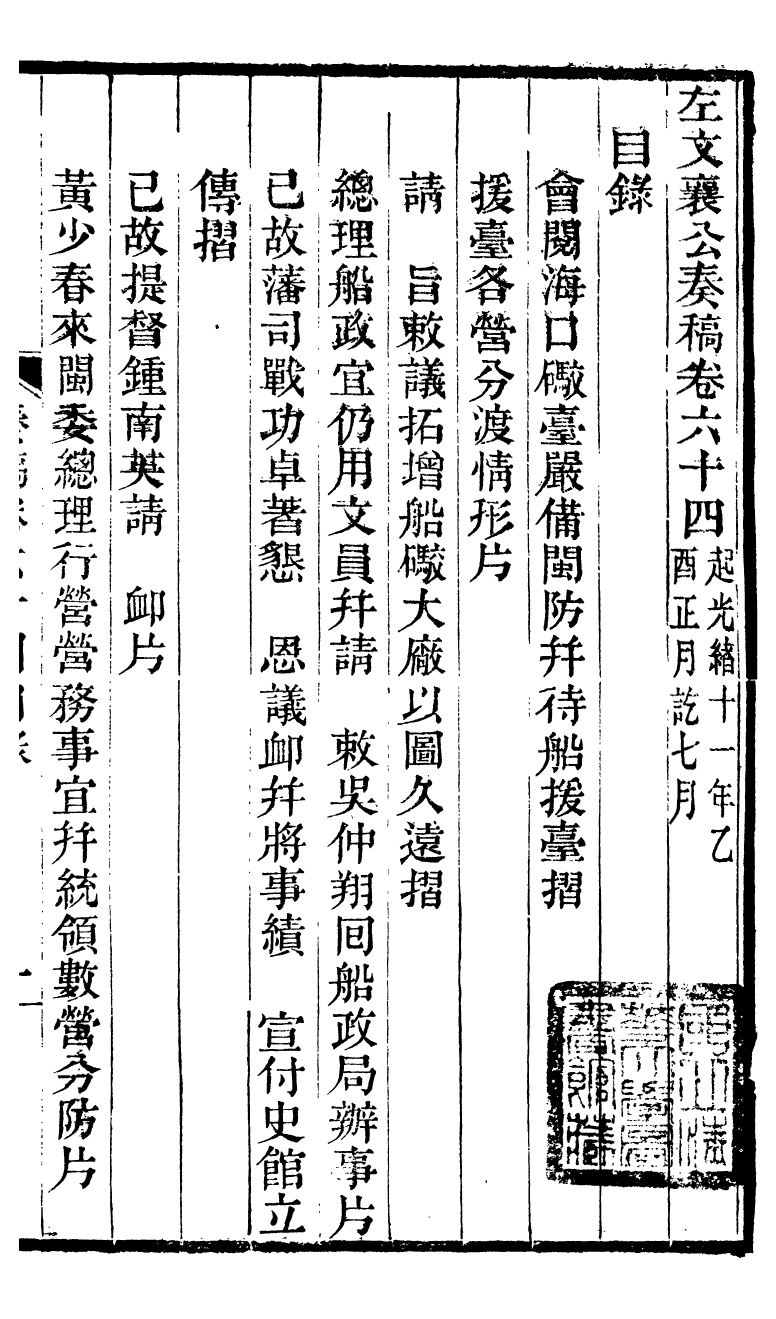 左文襄公奏稿卷六十四起光緒十一年乙
酉正月訖七月
目錄
會閱海口礮臺嚴備閩防幷待船援臺摺
援臺各營分渡情形片
請　旨敕議拓增船礮大廠以圖久遠摺
總理船政宜仍用文員幷請　敕吳仲翔回船政局辦事片
已故藩司戰功卓著懇　恩議卹幷將事績　宣付史館立
傳摺
已故提督鍾南英請　卹片
黃少春來閩委總理行營營務事宜幷統領數營分防片